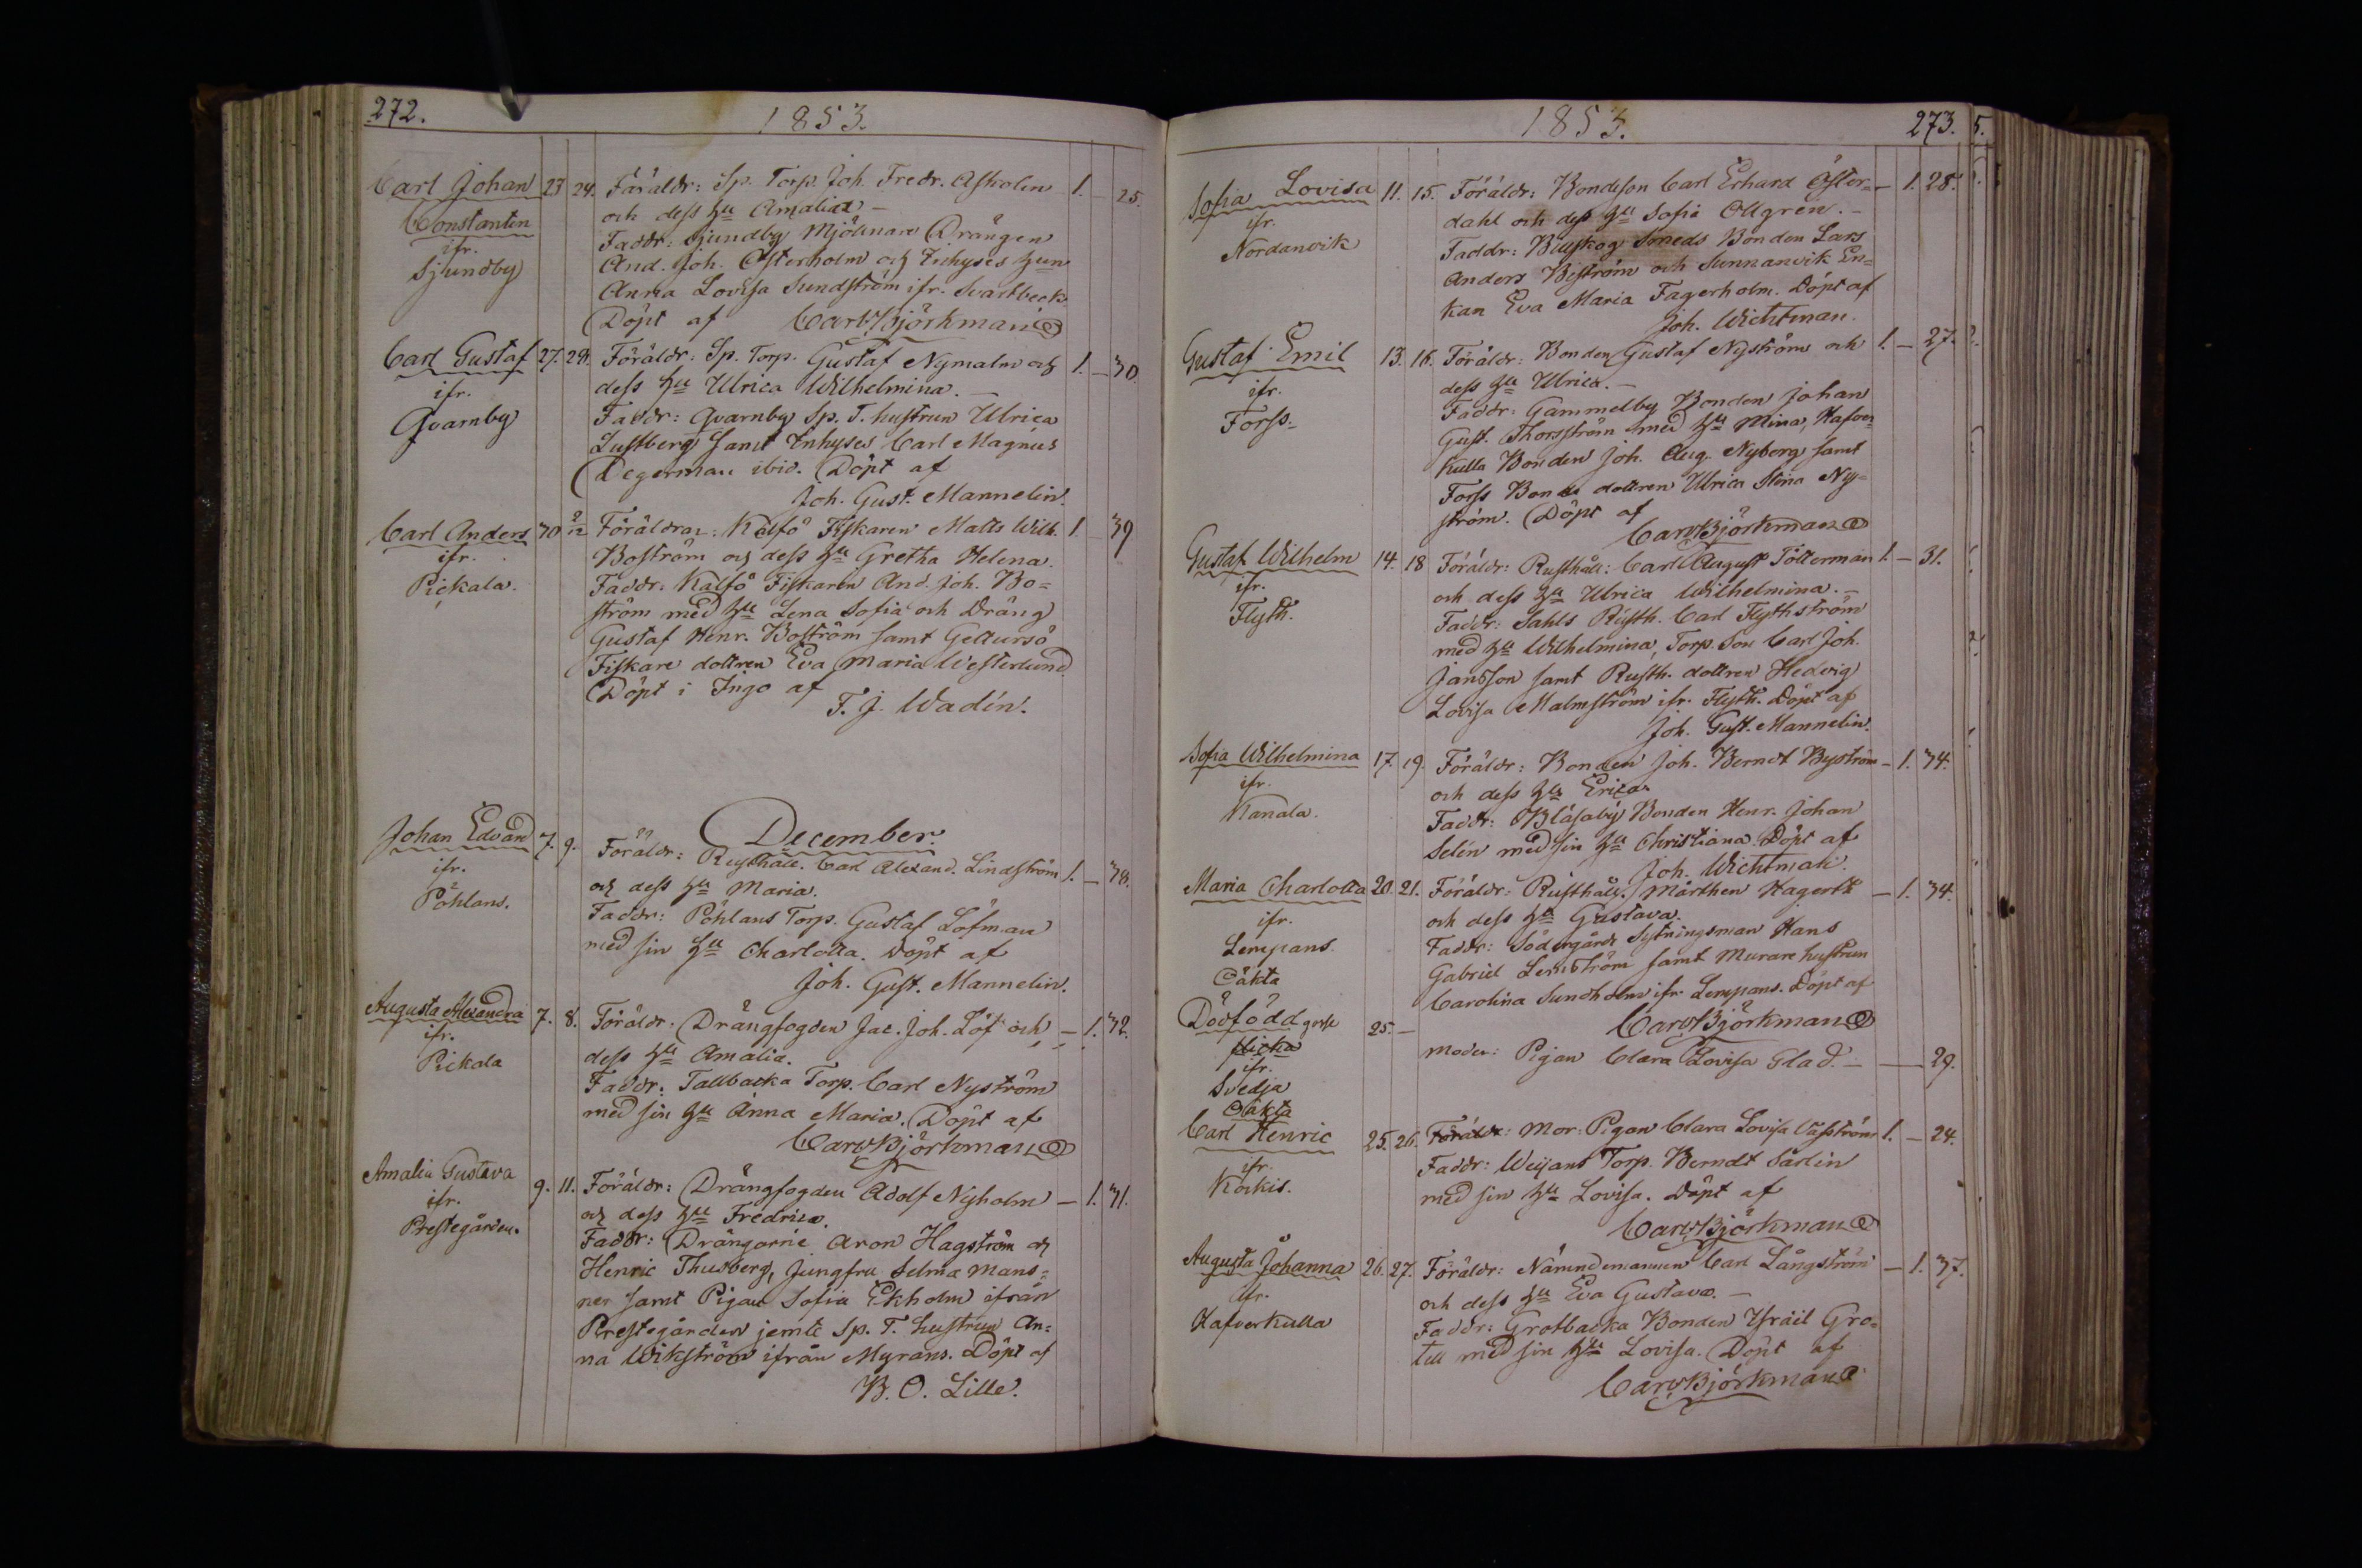 272.
1853.
Carl Johan 23 24. Föräldr: Sp. Torp. Joh. Fredr. Asholin 1. — 25.
Constantin och dess hu Amalia —
ifr. Faddr: Sjundby Mjölnare Drängen
Sjundby And. Joh. Österholm och Inhyses hun
Anna Lovisa Sundström ifr. Svartbeck
Döpt af Carl Björkman
Carl Gustaf 27. 29. Föräldr: Sp. Torp. Gustaf Nymalm och 1. — 30.
ifr. dess hu Ulrica Wilhelmina. —
Qvarnby Faddr: Qvarnby Sp. T. hustrun Ulrica
Lustberg samt Inhyses Carl Magnus
Degerman ibid. Döpt af
Joh. Gust. Mannelin.
Carl Anders 30 2/12 Föräldrar: Kalfö Fiskaren Matts Wilh. 1. — 39
ifr. Boström och dess hu Gretha Helena.
Pickala. Faddr: Kalfö Fiskaren And. Joh. Bo=
ström med hu Lena Sofia och Dräng
Gustaf Henr. Boström samt Geltursö
Fiskare dottren Eva Maria Westerlund.
Döpt i Ingo af
F. J. Wadén.
December.
Johan Edvard 7. 9. Föräldr: Rusthåll. Carl Alexand. Lindström 1. — 38.
ifr. och dess hu Maria.
Pöhlans. Faddr: Pöhlans Torp. Gustaf Löfman
med sin hu Charlotta. Döpt af
Joh. Gust. Mannelin.
Augusta Alexandra 7. 8. Föräldr: Drängfogden Jac. Joh. Löf och — 1. 32.
ifr. dess hu Amalia.
Pickala Faddr: Tallbacka Torp. Carl Nyström
med sin hu Anna Maria. Döpt af
Carl Björkman
Amalia Gustava 9. 11. Föräldr: Drängfogden Adolf Nyholm — 1. 31.
ifr. och dess hu Fredrica.
Prestegården. Faddr: Drängarne Aron Hagström och
Henric Thusberg, Jungfru Selma Mans=
ner samt Pigan Sofia Ekholm ifrån
Prestegården jemte Sp. T. hustrun An=
na Wikström ifrån Myrans. Döpt af
B. O. Lille.
1853.
273.
5.
Sofia Lovisa 11. 15. Föräldr: Bondeson Carl Erhard Öster= — 1. 28.
ifr. dahl och dess hu Sofia Ollgrén. —
Nordanvik Faddr: Bläskog Smeds Bonden Lars
Anders Biström och Sunnanvik En=
kan Eva Maria Fagerholm. Döpt af
Joh. Wichtman.
Gustaf Emil 13. 16. Föräldr: Bonden Gustaf Nyström och 1. — 27.
ifr. dess hu Ulrica. —
Forss. Faddr: Gammelby Bonden Johan
Gust. Thorsström med hu Mina, Hafver=
kulla Bonden Joh. Aug. Nyberg samt
Forss Bonde dottren Ulrica Stina Ny=
ström. Döpt af
Carl Björkman
Gustaf Wilhelm 14. 18 Föräldr: Rusthåll: Carl August Töllerman 1. — 31.
ifr. och dess hu Ulrica Wilhelmina. —
Flyth. Faddr: Sahls Rusth. Carl Flythström
med hu Wilhelmina, Torp. Son Carl Joh.
Jansson samt Rusth. dottren Hedvig
Lovisa Malmström ifr. Flyth. Döpt af
Joh. Gust. Mannelin.
Sofia Wilhelmina 17. 19. Föräldr: Bonden Joh. Berndt Byström — 1. 34.
ifr. och dess hu Erica.
Kanala. Faddr: Blåsaby Bonden Henr. Johan
Selin med sin hu Christiana. Döpt af
Joh. Wichtman.
Maria Charlotta 20. 21. Föräldr: Rusthåll. Mårthen Hagert — 1. 34.
ifr. och dess hu Gustava.
Lempans. Faddr: Södergårds Sytningsman Hans
Gabriel Lemström samt Murare hustrun
Carolina Sundholm ifr. Lempans. Döpt af
Carl Björkman
Oäkta
Dödfödd gosse 25. — Moder: Pigan Clara Lovisa Glad. — — 29.
flicka
ifr.
Svedja
Oäkta
Carl Henric 25. 26. Föräldr: Mor: Pigan Clara Lovisa Våsström 1. — 24.
ifr. Faddr: Weijans Torp. Berndt Sarlin
Kockis. med sin hu Lovisa. Döpt af
Carl Björkman
Augusta Johanna 26. 27. Föräldr: Nämndemannen Carl Långström — 1. 37.
ifr. och dess hu Eva Gustava. —
Hafverkulla Faddr: Grotbacka Bonden Israël Gro=
tell med sin hu Lovisa. Döpt af
Carl Björkman